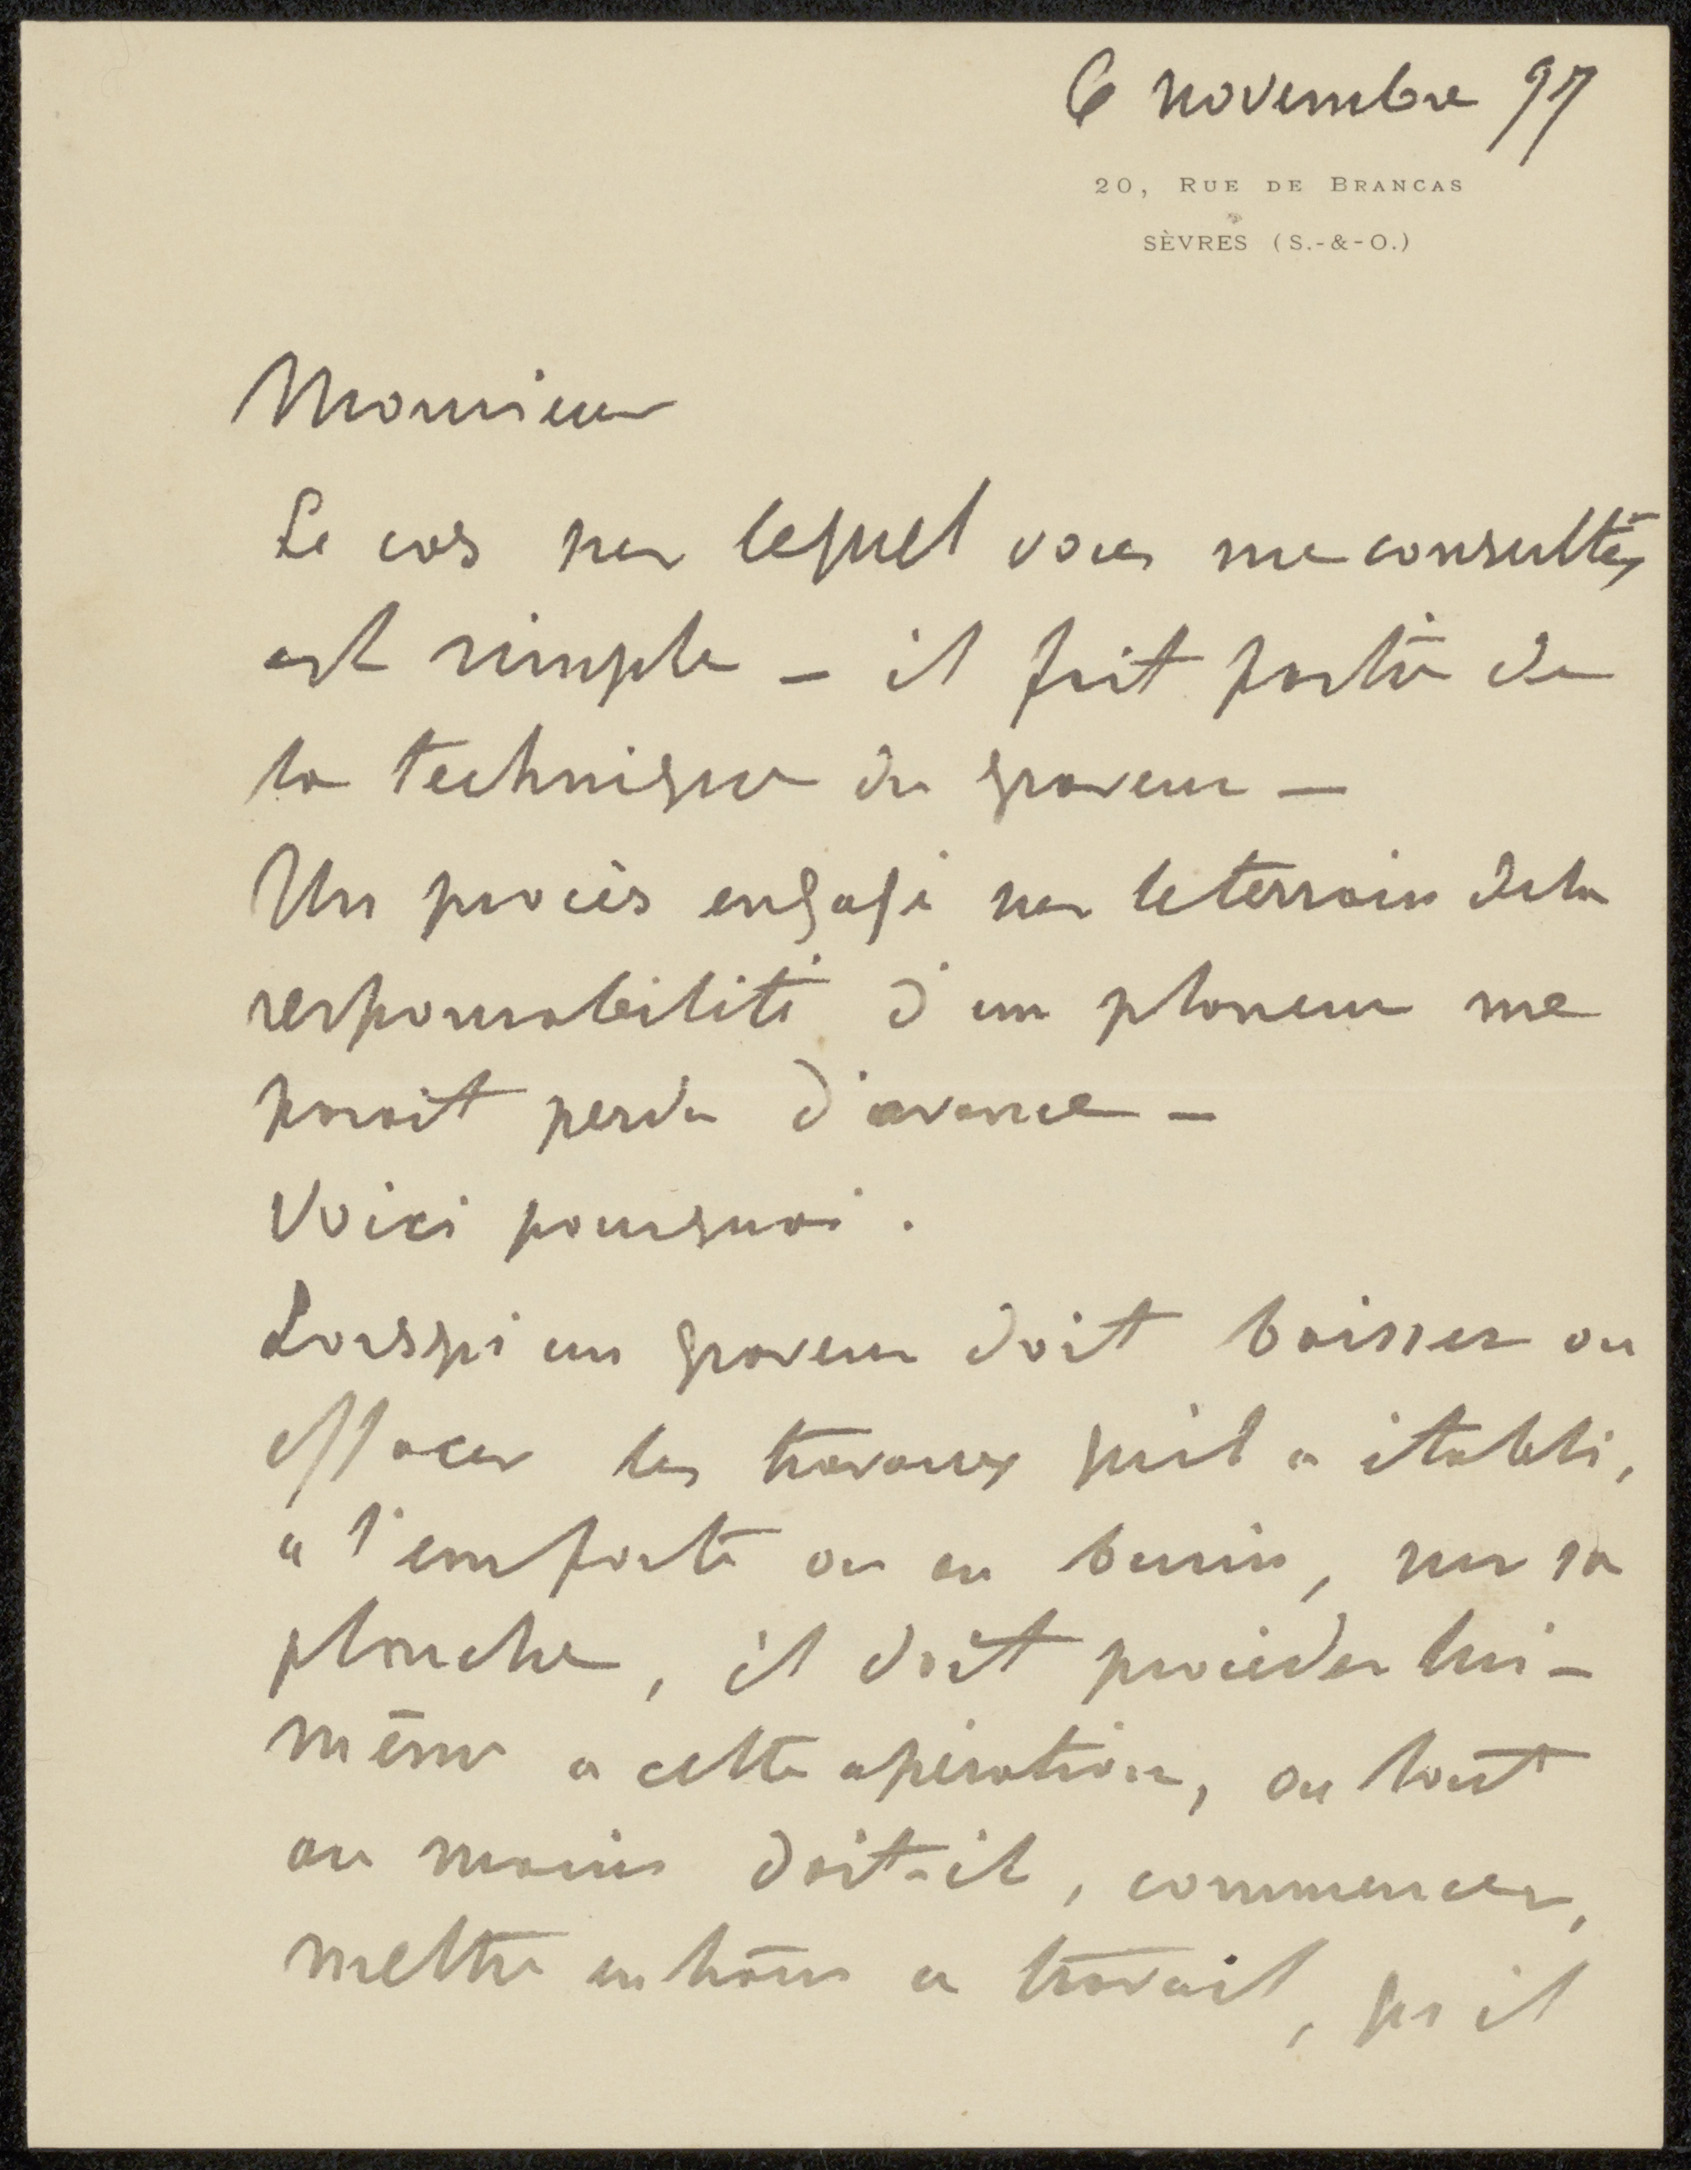 6 novembre 97
20, RUE DE BRANCAS
SÈVRES (S.-&-O.)
Monsieur
Le cas sur lequel vous me consultés
est simple – il fait partie de
la technique du graveur –
Un procès engagé sur le terrain de la
responsabilité d'un planeur me
parait perdu d'avance –
Voici pourquoi.
Lorsqu'un graveur doit baisser ou
effacer les travaux qu'il a établi,
a l'eau forte ou au burin, sur sa
planche, il doit procéder lui-
même a cette opération, ou tout
au moins doit-il, commencer,
mettre en train ce travail, qu'il